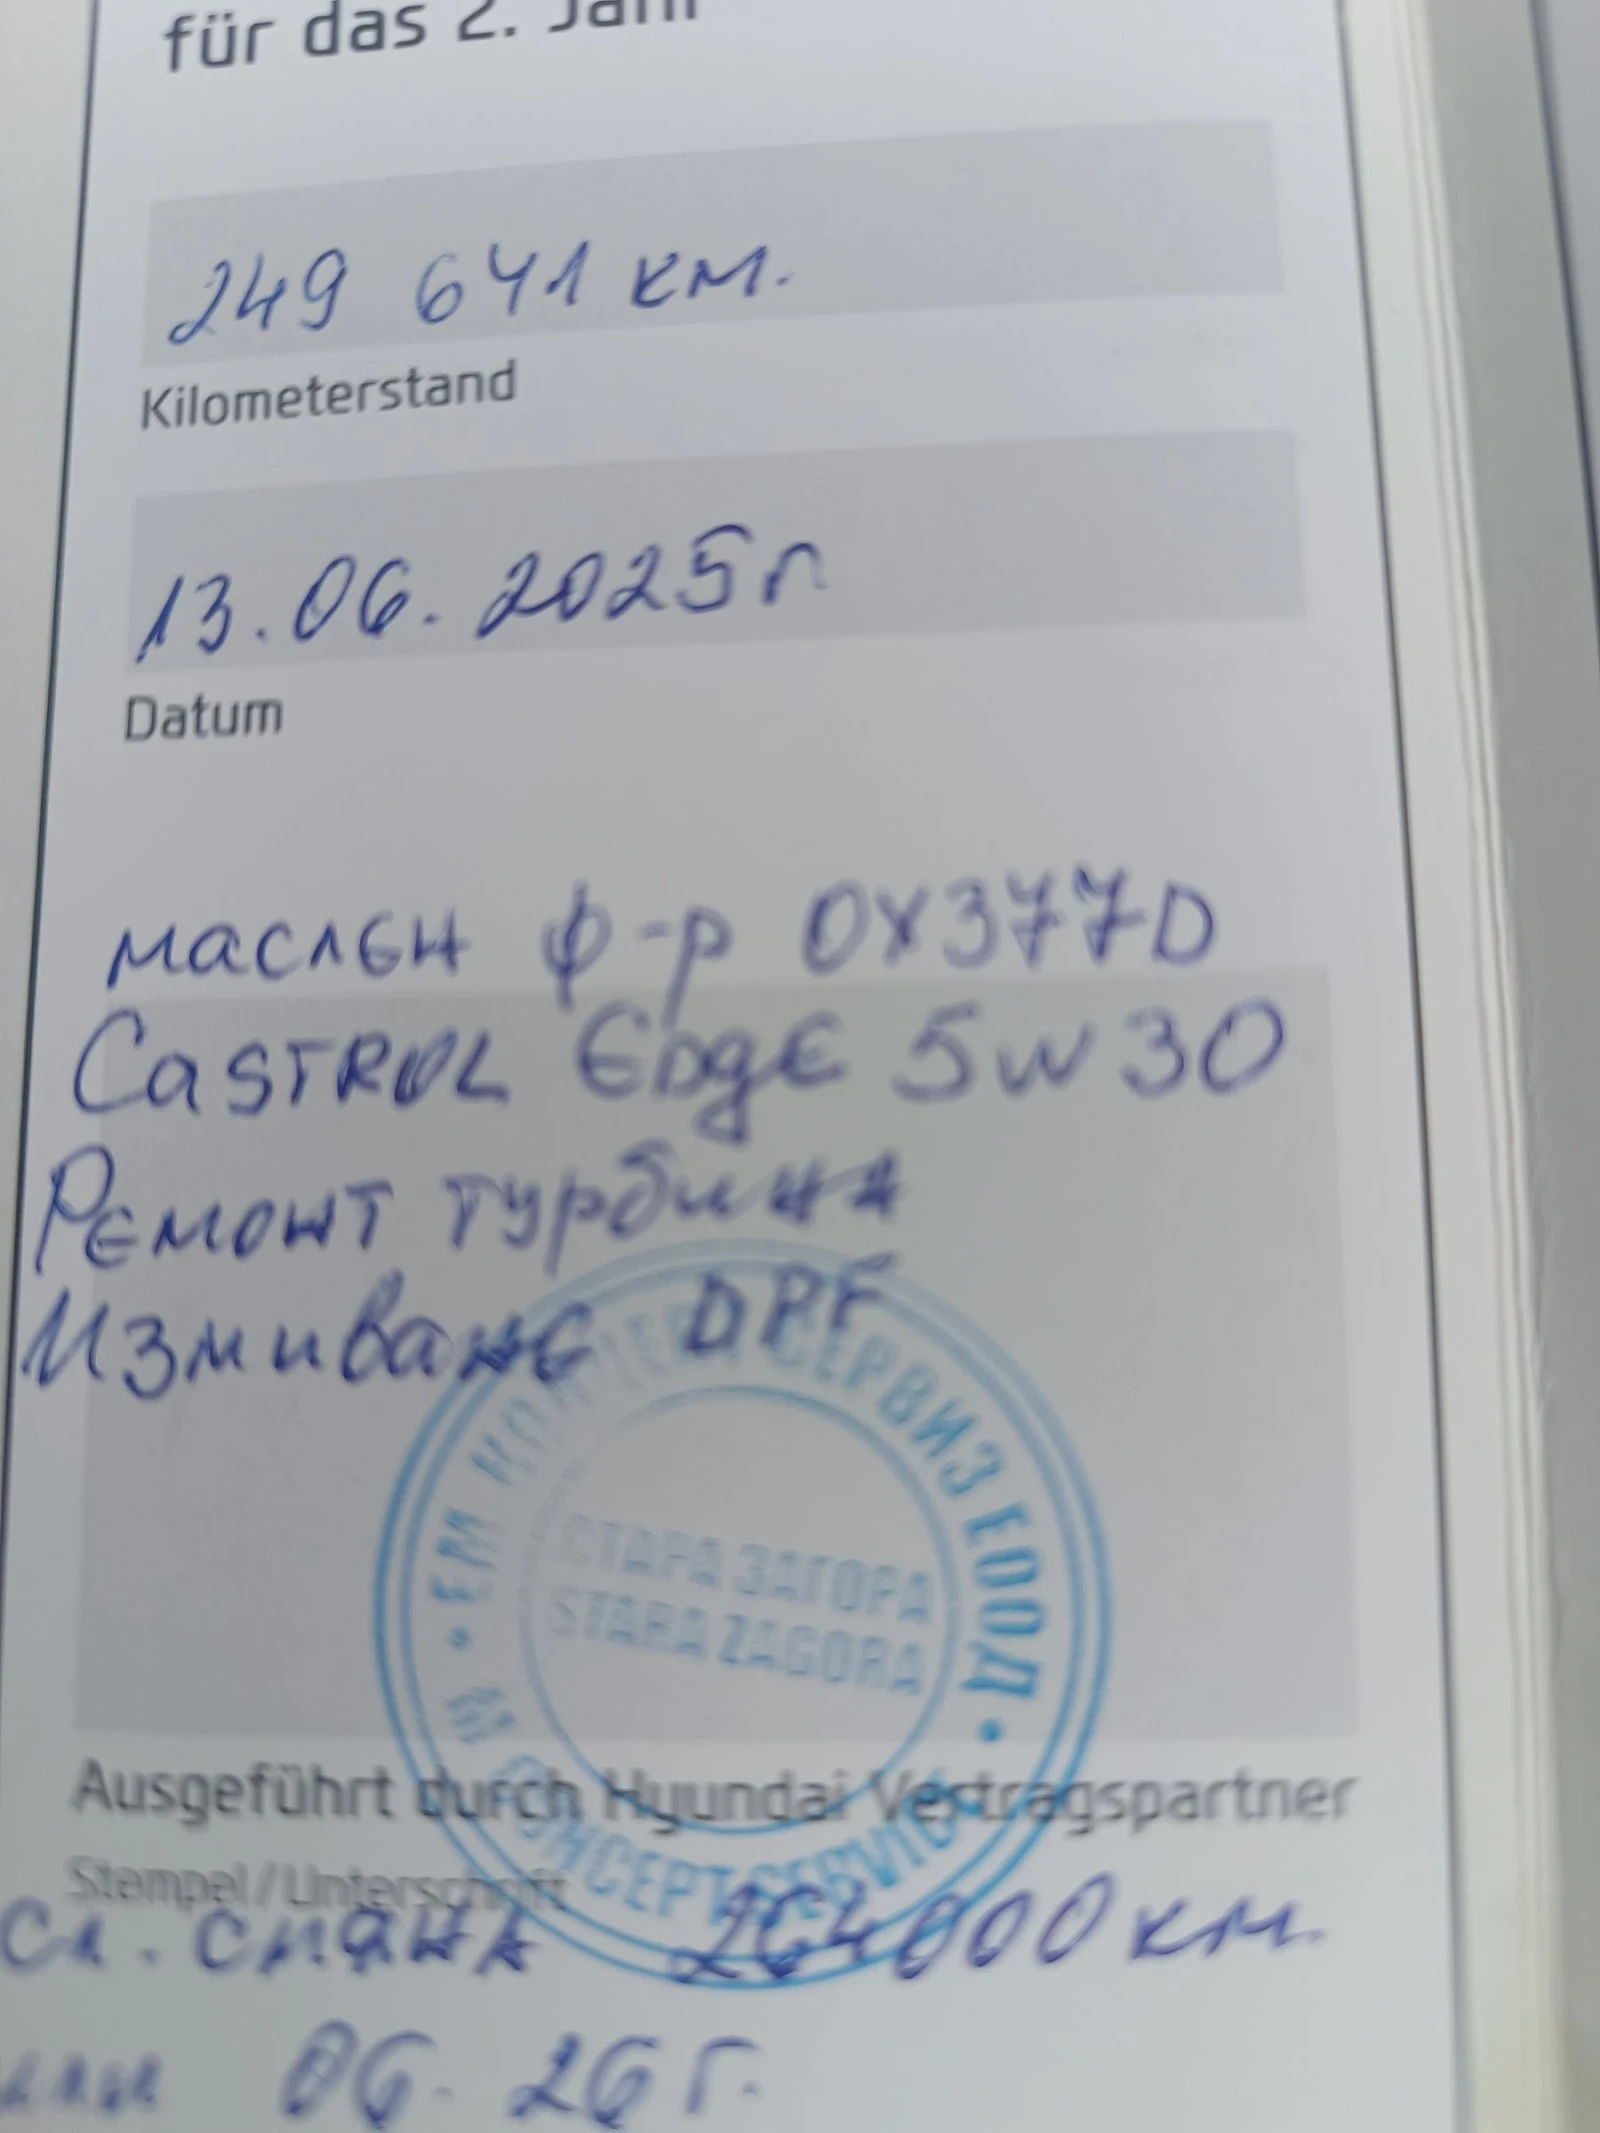 für das 2. Jahr
249 641 км.
Kilometerstand
13.06.2025г
Datum
маслен ф-р OX377D
Castrol Edge 5w30
Ремонт турбина
Измиване DPF
ЕМ КОНЦЕПТ СЕРВИЗ ЕООД
СТАРА ЗАГОРА
STARA ZAGORA
M CONCEPT SERVICE
Ausgeführt durch Hyundai Vertragspartner
Stempel/Unterschrift
Сл. смяна 264000 км.
или 06.26 г.